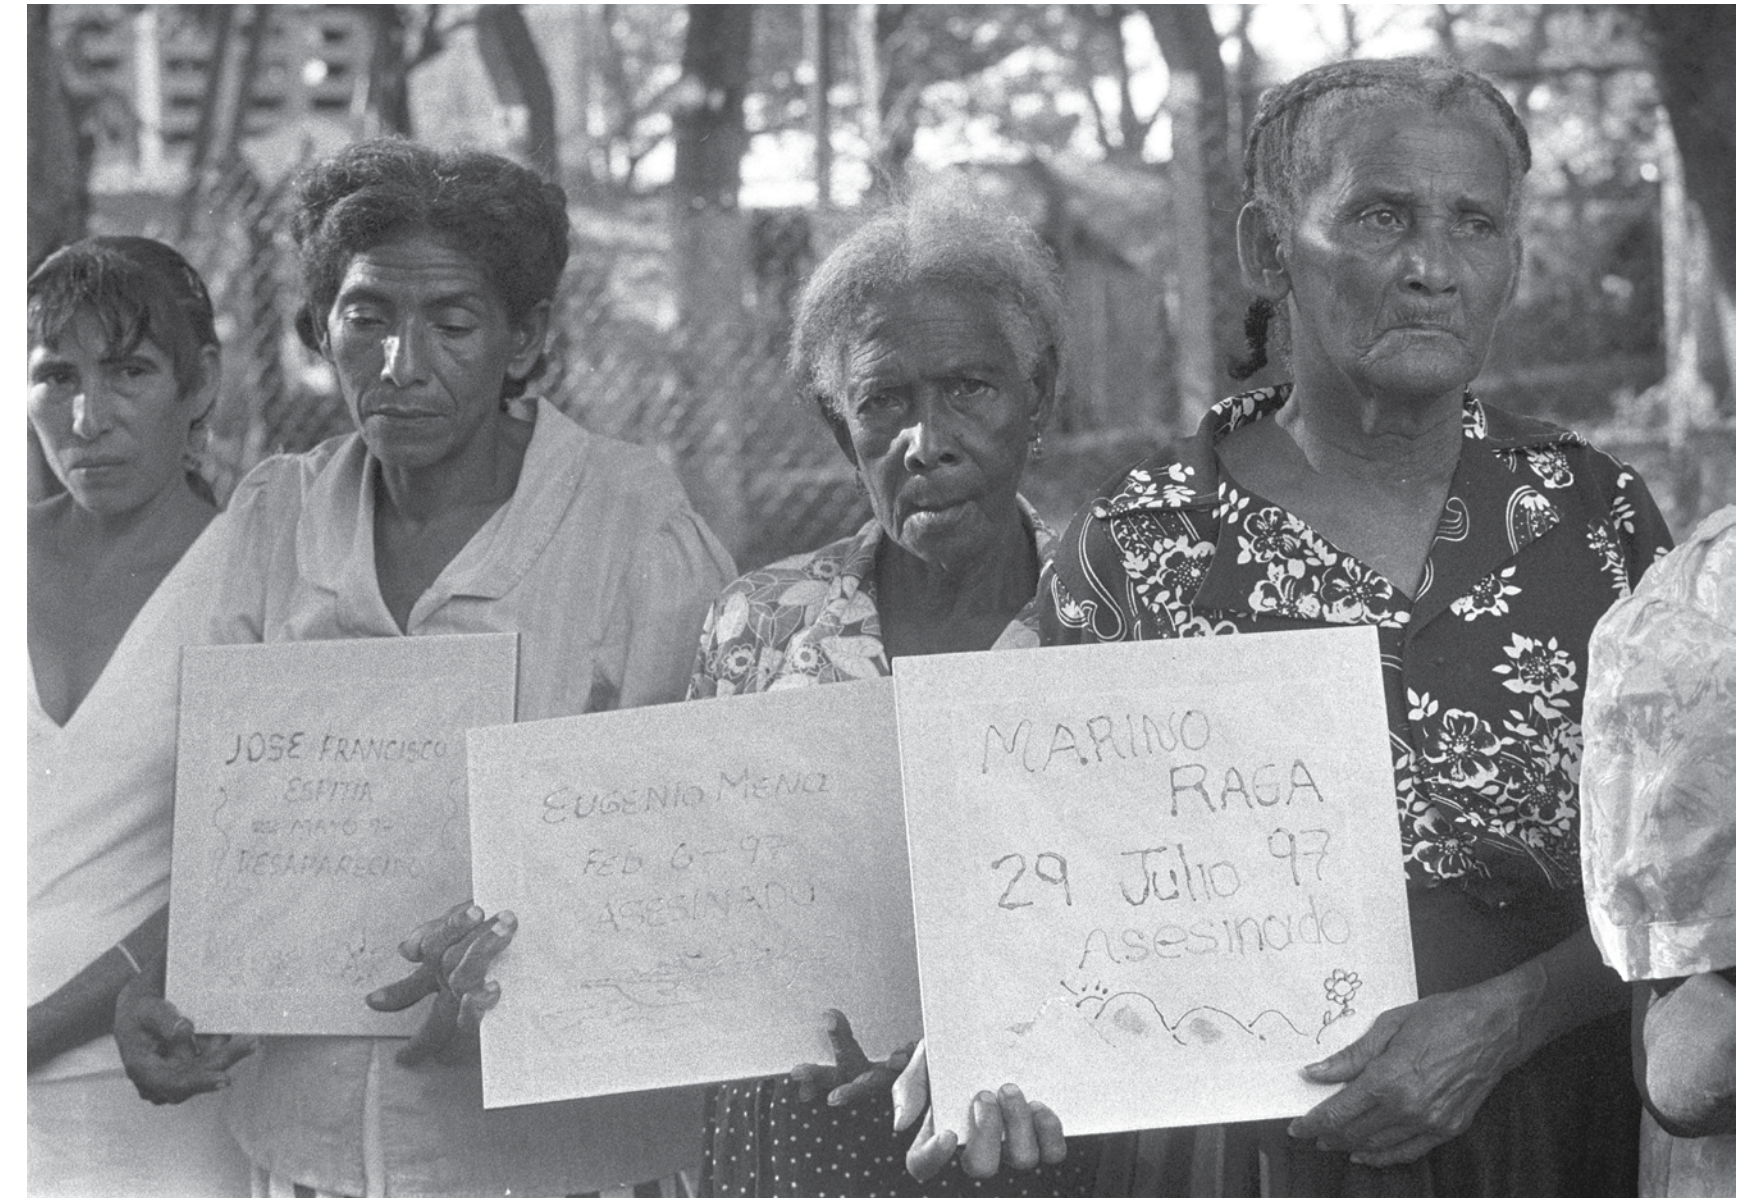 JOSE FRANCISCO
ESPITIA
MAYO 97
DESAPARECIDO
EUGENIO MENA
FEB 6 - 97
ASESINADO
MARINO
RAGA
29 Julio 97
Asesinado